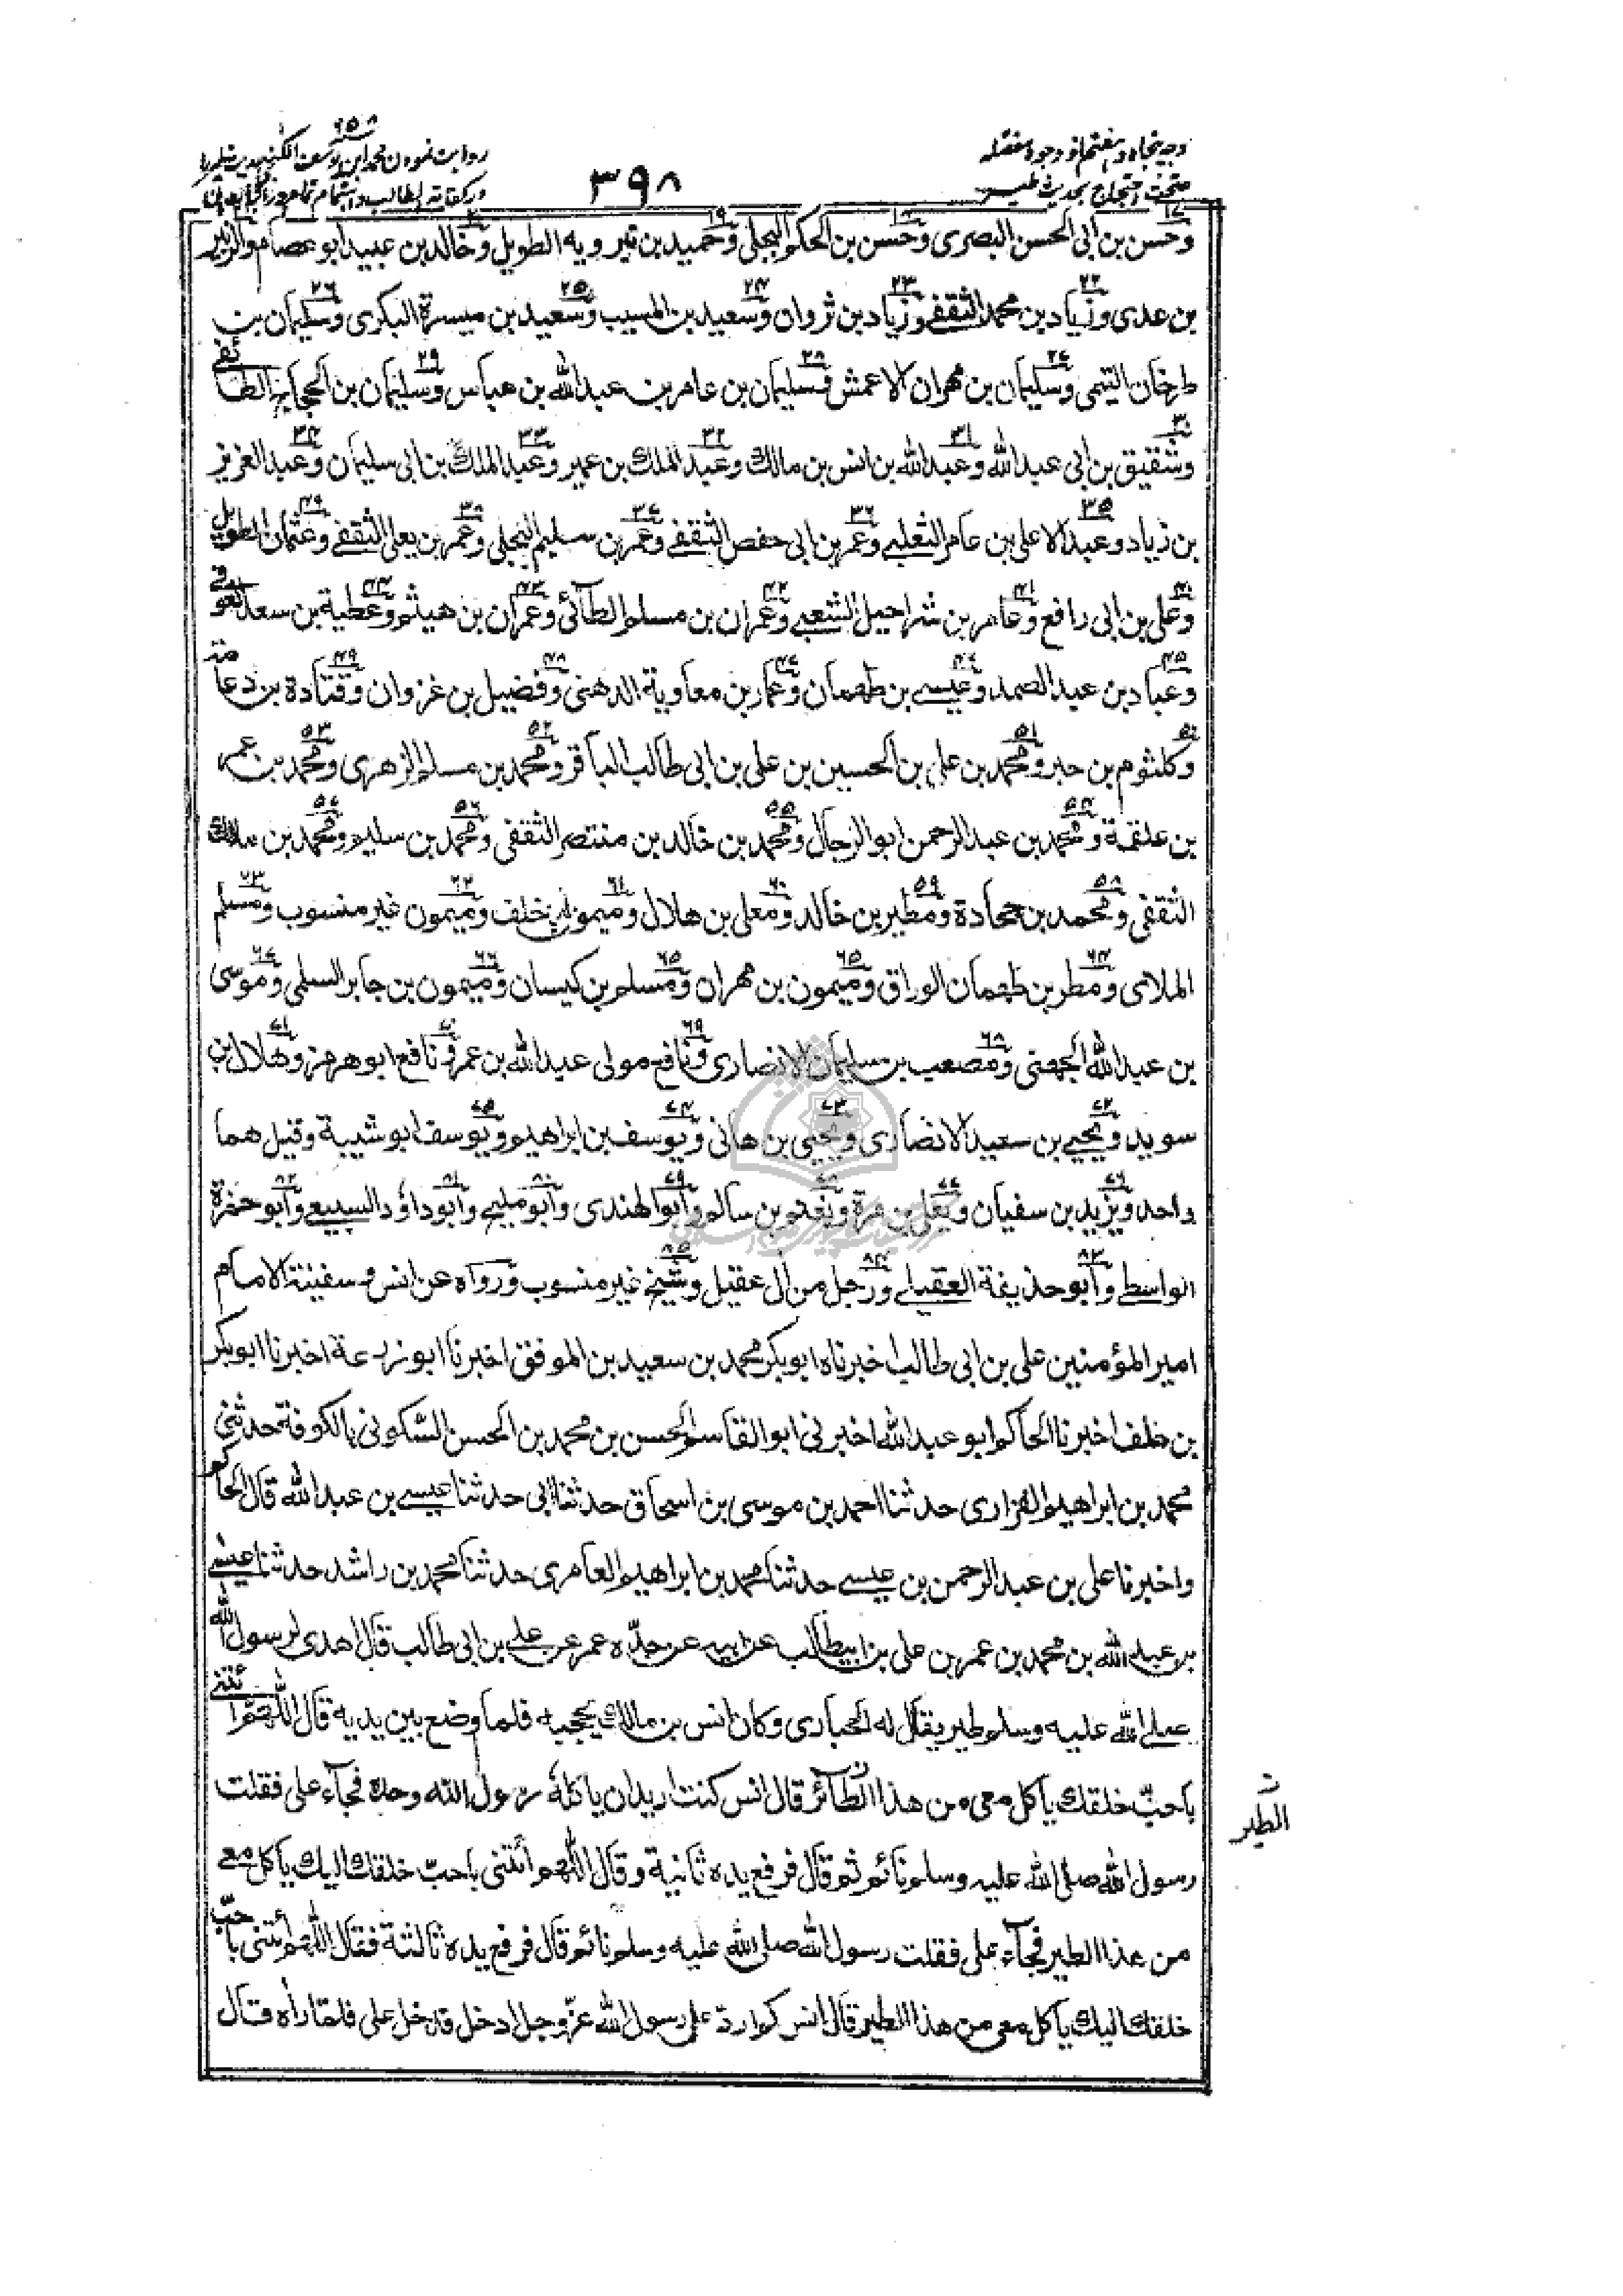 وجه پنجاه و هفتم از وجوه مفصله
متحف احتجاج بحدیث طیر
٣٩٨
٢٥٨
روایت نمودن محمد بن یوسف الکنجی حدیث طیر را
در کفایة الطالب و اهتمام تمام در
وحسن بن ابى الحسن البصرى وحسن بن الحكم البجلى وحميد بن تيرويه الطويل وخالد بن عبيد ابو عصام والزبير
بن عدى وزياد بن محمد الثقفى وزياد بن ثروان وسعيد بن المسيب وسعيد بن ميسرة البكرى وسليمان بن
طرخان التيمى وسليمان بن مهران الاعمش وسليمان بن عامر بن عبدالله بن عباس وسليمان بن الحجاج الطائفى
وشقيق بن ابى عبدالله وعبدالله بن انس بن مالك وعبد الملك بن عمير وعبد الملك بن ابى سليمان وعبد العزيز
بن زياد وعبد الاعلى بن عامر الثعلبى وعمر بن ابى حفص الثقفى وعمر بن سليم البجلى وعمر بن يعلى الثقفى وعثمان الطويل
وعلى بن ابى رافع وعامر بن شراحيل الشعبى وعمران بن مسلم الطائى وعمران بن هيثم وعطية بن سعد العوفى
وعباد بن عبد الصمد وعيسى بن طهمان وعمار بن معاوية الدهنى وفضيل بن غزوان وقتادة بن دعامة
وكلثوم بن جبر ومحمد بن على بن الحسين بن على بن ابى طالب الباقر ومحمد بن مسلم الزهرى ومحمد بن عمر
بن علقمة ومحمد بن عبد الرحمن ابو الرجال ومحمد بن خالد بن منتصر الثقفى ومحمد بن سليم ومحمد بن مالك
الثقفى ومحمد بن جحادة ومطير بن خالد ومعلى بن هلال وميمون ابى خلف وميمون غير منسوب ومسلم
الملاى ومطر بن طهمان الوراق وميمون بن مهران ومسلم بن كيسان وميمون بن جابر السلمى وموسى
بن عبد الله الجهنى ومصعب بن سليمان الانصارى ونافع مولى عبد الله بن عمر ونافع ابو هرمز وهلال بن
سويد ويحيى بن سعيد الانصارى ويحيى بن هانى ويوسف بن ابراهيم ويوسف ابو شيبة وقيل هما
واحد ويزيد بن سفيان ويعلى بن مرة ونعيم بن سالم وابو الهندى وابو مليح وابو داؤد السبيعى وابو حمزة
الواسطى وابو حذيفة العقيلى ورجل من ال عقيل وشيخ غير منسوب ورواه عن انس وسفينة الامام
امير المؤمنين على بن ابى طالب اخبرناه ابو بكر محمد بن سعيد بن الموفق اخبرنا ابو زرعة اخبرنا ابو بكر
بن خلف اخبرنا الحاكم ابو عبد الله اخبرنى ابو القاسم الحسن بن محمد بن الحسن السكونى بالكوفة حدثنى
محمد بن ابراهيم الفزارى حدثنا احمد بن موسى بن اسحاق حدثنا ابى حدثنا عيسى بن عبد الله قال الحاكم
واخبرنا على بن عبد الرحمن بن عيسى حدثنا محمد بن ابراهيم العامرى حدثنا محمد بن راشد حدثنا عيسى
بن عبد الله بن محمد بن عمر بن على بن ابيطالب عن ابيه عن جدّه عمر عن على بن ابى طالب قال اهدى لرسول الله
صلى الله عليه وسلم طير يقال له الحبارى وكان انس بن مالك يحجبه فلما وضع بين يديه قال اللّهمّ ائتنى
باحبّ خلقك يأكل معى من هذا الطائر قال انس كنت اريد ان ياكله رسول الله وحده فجآء على فقلت
الطير
رسول الله صلى الله عليه وسلم نائم ثم قال فرفع يده ثانية وقال اللّهم أئتنى باحبّ خلقك اليك يأكل معى
من هذا الطير فجآء على فقلت رسول الله صلى الله عليه وسلم نائم قال فرفع يده ثالثة فقال اللّهم أئتنى باحبّ
خلقك اليك يأكل معى من هذا الطير قال انس كم ارد على رسول الله عزّ وجل ادخل فدخل على فلمّا راه قال